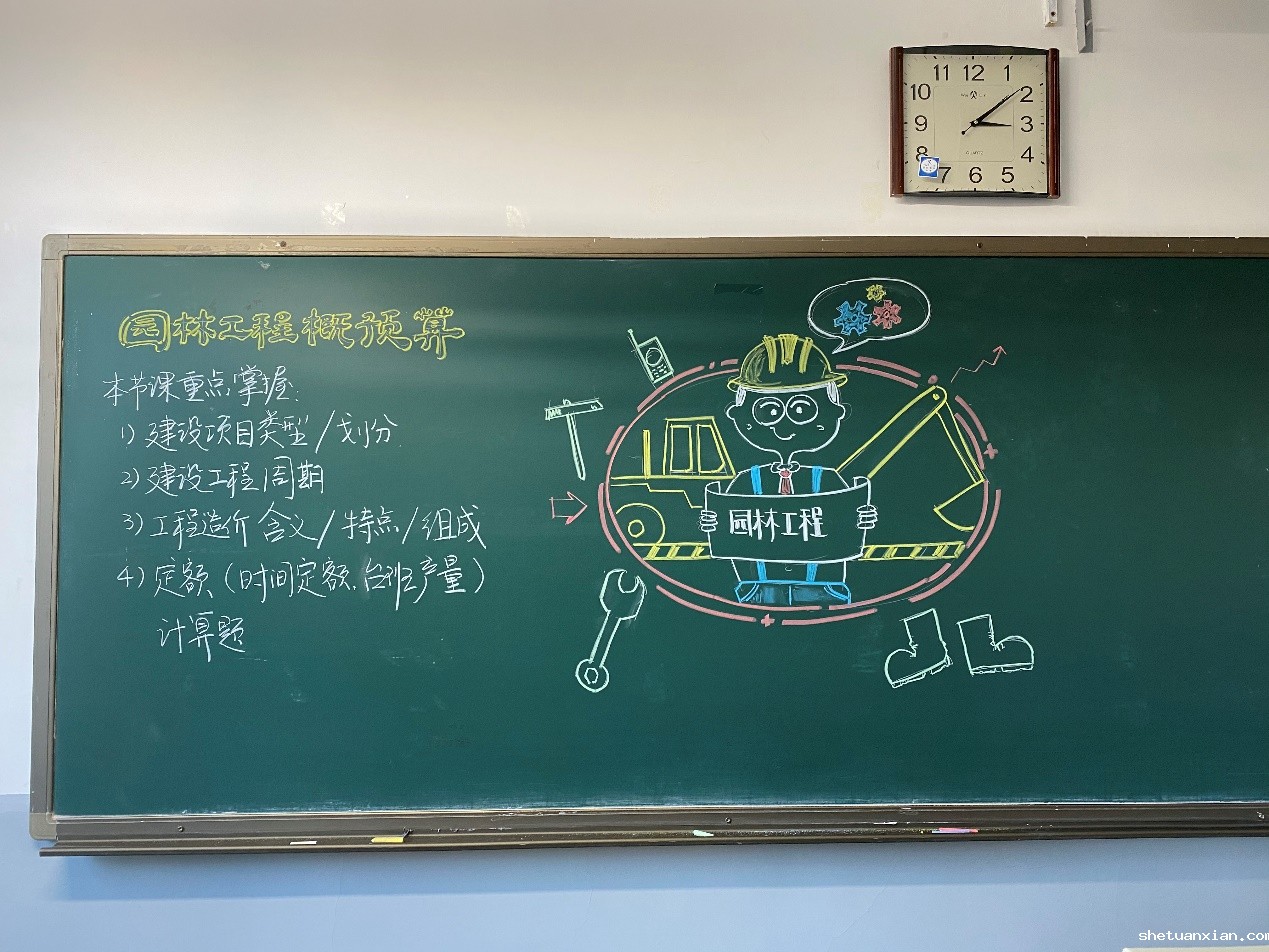 11 12 1
10 2
9 3
8 4
7 6 5
QUARTZ
园林工程概预算
本节课重点掌握:
1) 建设项目类型/划分
2) 建设工程周期
3) 工程造价含义/特点/组成
4) 定额(时间定额、台班产量)
计算题
园林工程
shetuanxian.com